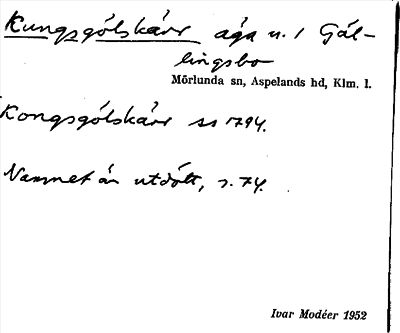 Kungsgölskärr äga n. 1 Gäl-
lingsbo
Mörlunda sn, Aspelands hd, Klm. l.
Kongsgölskärr ss 1794.
Namnet är utdött, s. 74.
Ivar Modéer 1952